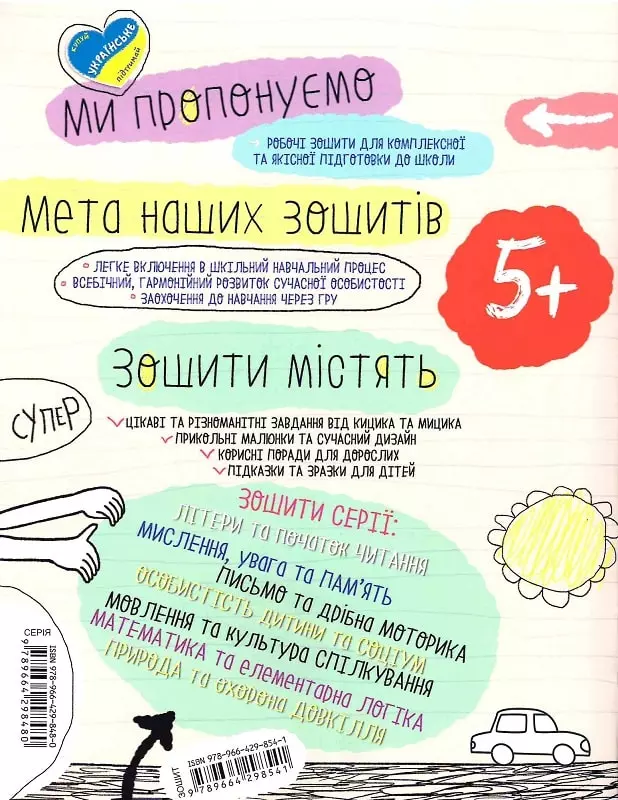 КУПУЙ
УКРАЇНСЬКЕ
ПІДТРИМАЙ
МИ ПРОПОНУЄМО
РОБОЧІ ЗОШИТИ ДЛЯ КОМПЛЕКСНОЇ
ТА ЯКІСНОЇ ПІДГОТОВКИ ДО ШКОЛИ
МЕТА НАШИХ ЗОШИТІВ
ЛЕГКЕ ВКЛЮЧЕННЯ В ШКІЛЬНИЙ НАВЧАЛЬНИЙ ПРОЦЕС
ВСЕБІЧНИЙ, ГАРМОНІЙНИЙ РОЗВИТОК СУЧАСНОЇ ОСОБИСТОСТІ
ЗАОХОЧЕННЯ ДО НАВЧАННЯ ЧЕРЕЗ ГРУ
5+
ЗОШИТИ МІСТЯТЬ
СУПЕР
ЦІКАВІ ТА РІЗНОМАНІТНІ ЗАВДАННЯ ВІД КИЦИКА ТА МИЦИКА
ПРИКОЛЬНІ МАЛЮНКИ ТА СУЧАСНИЙ ДИЗАЙН
КОРИСНІ ПОРАДИ ДЛЯ ДОРОСЛИХ
ПІДКАЗКИ ТА ЗРАЗКИ ДЛЯ ДІТЕЙ
ЗОШИТИ СЕРІЇ:
ЛІТЕРИ ТА ПОЧАТОК ЧИТАННЯ
МИСЛЕННЯ, УВАГА ТА ПАМ'ЯТЬ
ПИСЬМО ТА ДРІБНА МОТОРИКА
ОСОБИСТІСТЬ ДИТИНИ ТА СОЦІУМ
МОВЛЕННЯ ТА КУЛЬТУРА СПІЛКУВАННЯ
МАТЕМАТИКА ТА ЕЛЕМЕНТАРНА ЛОГІКА
ПРИРОДА ТА ОХОРОНА ДОВКІЛЛЯ
СЕРІЯ
ISBN 978-966-429-848-0
9789664298480
ЗОШИТ
ISBN 978-966-429-854-1
9789664298541